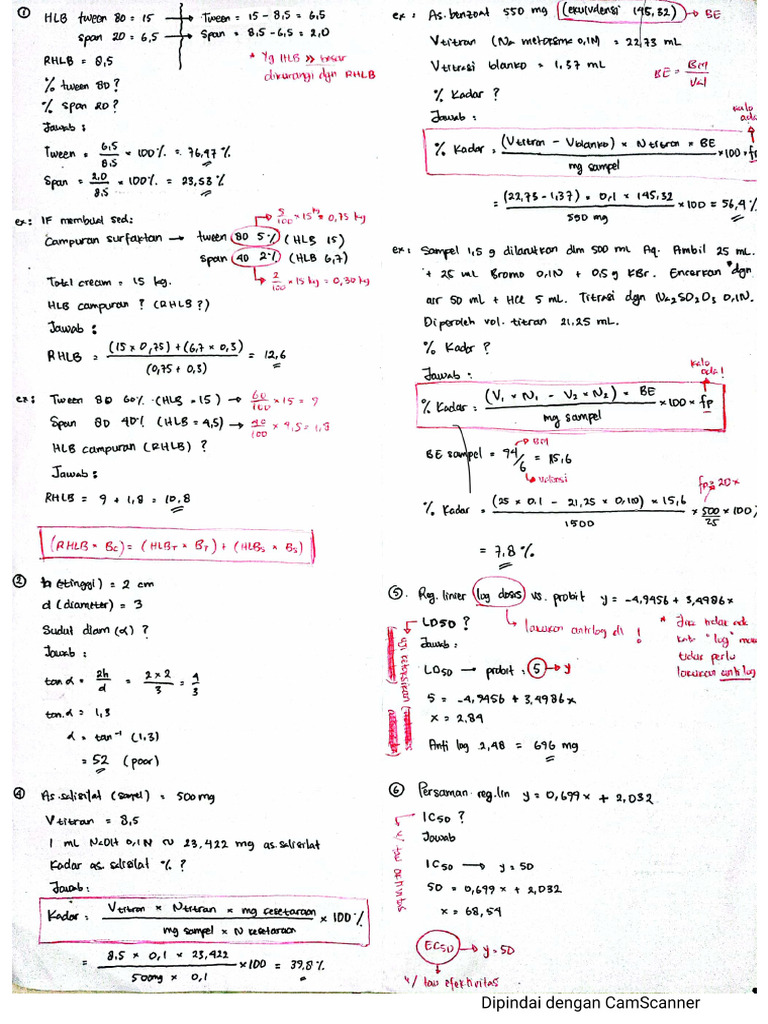 ① HLB tween 80 = 15 → Tween = 15 - 8,5 = 6,5
span 20 = 6,5 → Span = 8,5 - 6,5 = 2,0
RHLB = 8,5
* Yg HLB >> besar
dikurangi dgn RHLB
% tween 80?
% span 20?
Jawab :
Tween = 6,5/8.5 × 100% = 76,47 %
Span = 2.0/8.5 × 100% = 23,53 %
ex: IF membuat sed:
5/100 × 15 kg = 0,75 kg
Campuran surfaktan → tween 80 5% (HLB 15)
span 40 2% (HLB 6,7)
2/100 × 15 kg = 0,30 kg
Total cream = 15 kg.
HLB campuran ? (RHLB?)
Jawab :
RHLB = (15 × 0,75) + (6,7 × 0,3) / (0,75 + 0,3) = 12,6
ex: Tween 80 60% (HLB = 15) → 60/100 × 15 = 9
Span 80 40% (HLB = 4,5) → 40/100 × 4,5 = 1,8
HLB campuran (RHLB) ?
Jawab :
RHLB = 9 + 1,8 = 10,8
(RHLB × Bc) = (HLBT × BT) + (HLBS × BS)
② h (tinggi) = 2 cm
d (diameter) = 3
Sudut diam (α) ?
Jawab :
tan α = 2h/d = 2 × 2/3 = 4/3
tan.α = 1,3
α = tan⁻¹ (1,3)
= 52 (poor)
④ As.salisilat (sampel) = 500 mg
Vtitran = 8,5
1 mL NaOH 0,1 N ~ 23,422 mg as.salisilat
Kadar as. salisilat % ?
Jawab :
Kadar = Vtitran × Ntitran × mg kesetaraan / mg sampel × N kesetaraan × 100%
= 8.5 × 0,1 × 23,422 / 500mg × 0,1 × 100 = 39,8%
ex: As. benzoat 550 mg (ekuivalensi 145,32) → BE
Vtitran (Na metoksime 0,1N) = 22,73 mL
Vtitrasi blanko = 1,37 mL
BE = BM/Val
% Kadar ?
Jawab :
kalo ada
% Kadar = (Vtitran - Vblanko) × Ntitran × BE / mg sampel × 100 × fp
= (22,73 - 1,37) × 0,1 × 145,32 / 550 mg × 100 = 56,4 %
ex: Sampel 1,5 g dilarutkan dlm 500 mL Aq. Ambil 25 mL.
+ 25 mL Bromo 0,1N + 0,5 g KBr. Encerkan dgn
air 50 mL + HCl 5 mL. Titrasi dgn Na2SO2O3 0,1N.
Diperoleh vol. titran 21,25 mL.
% Kadar ?
Jawab :
kalo ada!
% Kadar = (V1 × N1 - V2 × N2) × BE / mg sampel × 100 × fp
BE sampel = 94/6 = 15,6
BM
valensi
fp = 20×
% Kadar = (25 × 0.1 - 21,25 × 0,10) × 15,6 / 1500 × 500/25 × 100
= 7,8 %
⑤. Reg. linier log dosis vs. probit y = -4,9456 + 3,4986x
LD50 ?
lakukan antilog di !
* Jika tidak ada
kata "log" maka
tidak perlu
lakukan anti log
Jawab :
LD50 → probit = 5 → y
5 = -4,9456 + 3,4986 x
x = 2,84
Anti log 2,48 = 696 mg
⑥ Persaman reg.lin y = 0,699x + 2,032
IC50 ?
u/ tau aktivitas
Jawab
IC50 → y = 50
50 = 0,699 x + 2,032
x = 68,54
EC50 → y = 50
u/ tau efektivitas
Dipindai dengan CamScanner